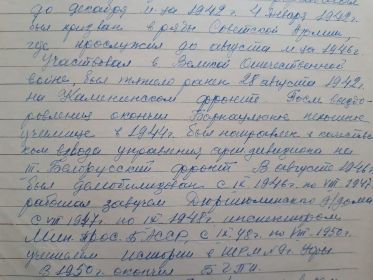 до декабря м-ца 1942 г. 4 января 1942 г.
был призван в ряды Советской Армии,
где прослужил до августа м-ца 1946 г.
Участвовал в Великой Отечественной
войне, был тяжело ранен 28 августа 1942 г.
на Калининском фронте. После выздо-
ровления окончил Барнаульское пехотное
училище в 1944 г. был направлен
ком взвода управления артдивизиона на
III Белорусский фронт. В августе 1946 г.
был демобилизован. С IX 1946 г. по VIII 1947
работал завучем Дюртюлинского д/дома
с VIII 1947 г. по IX 1948 г. инспектором
Мин. Прос. БАССР, с IX 48 г. по VIII. 1950 г.
учителем истории в ШРМ № 9 г. Уфы
В 1950 г. окончил БГПИ.